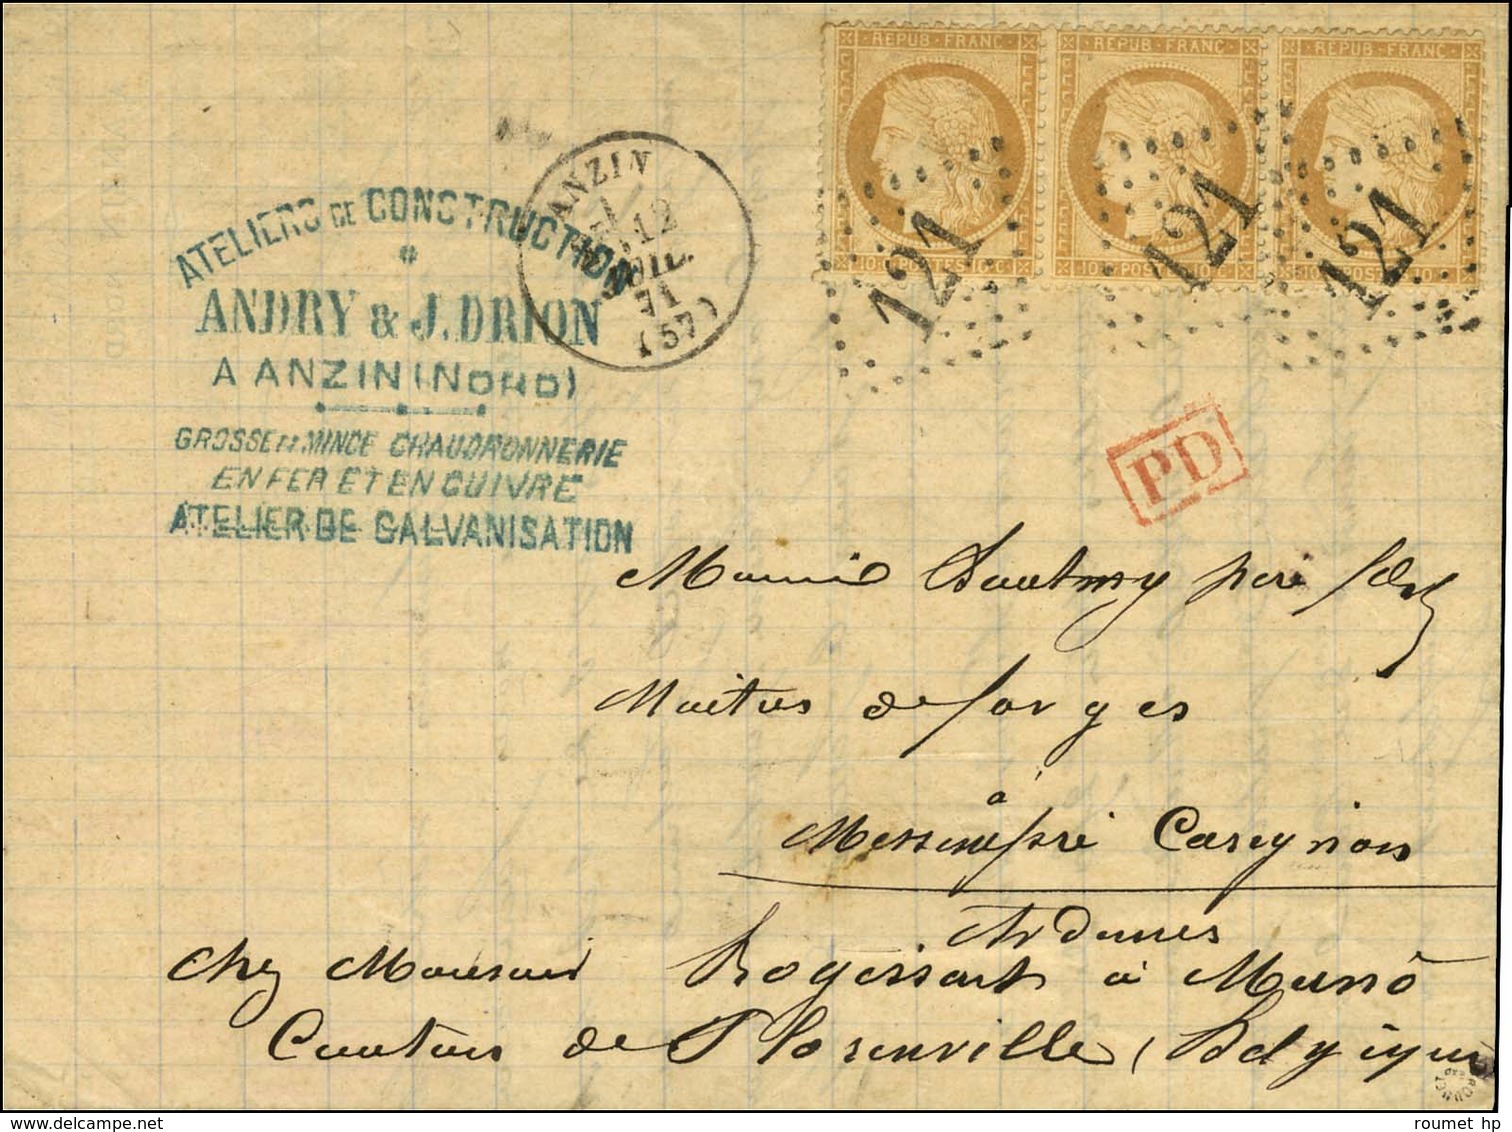 REPUB·FRANC·
REPUB·FRANC·
REPUB·FRANC·
121
121
121
10·C POSTES 10·C
10·C POSTES 10·C
10·C POSTES 10·C
ANZIN
12
JUIL.
71
(57)
ATELIERS DE CONSTRUCTION
ANDRY & J. DRION
A ANZIN (NORD)
GROSSE ET MINCE CHAUDRONNERIE
EN FER ET EN CUIVRE
ATELIER DE GALVANISATION
PD
père
Maitres de forges
à
Messempré Carignan
Ardennes
Chez Monsieur Rogissart à Muno
Canton de Florenville (Belgique
roumet hp